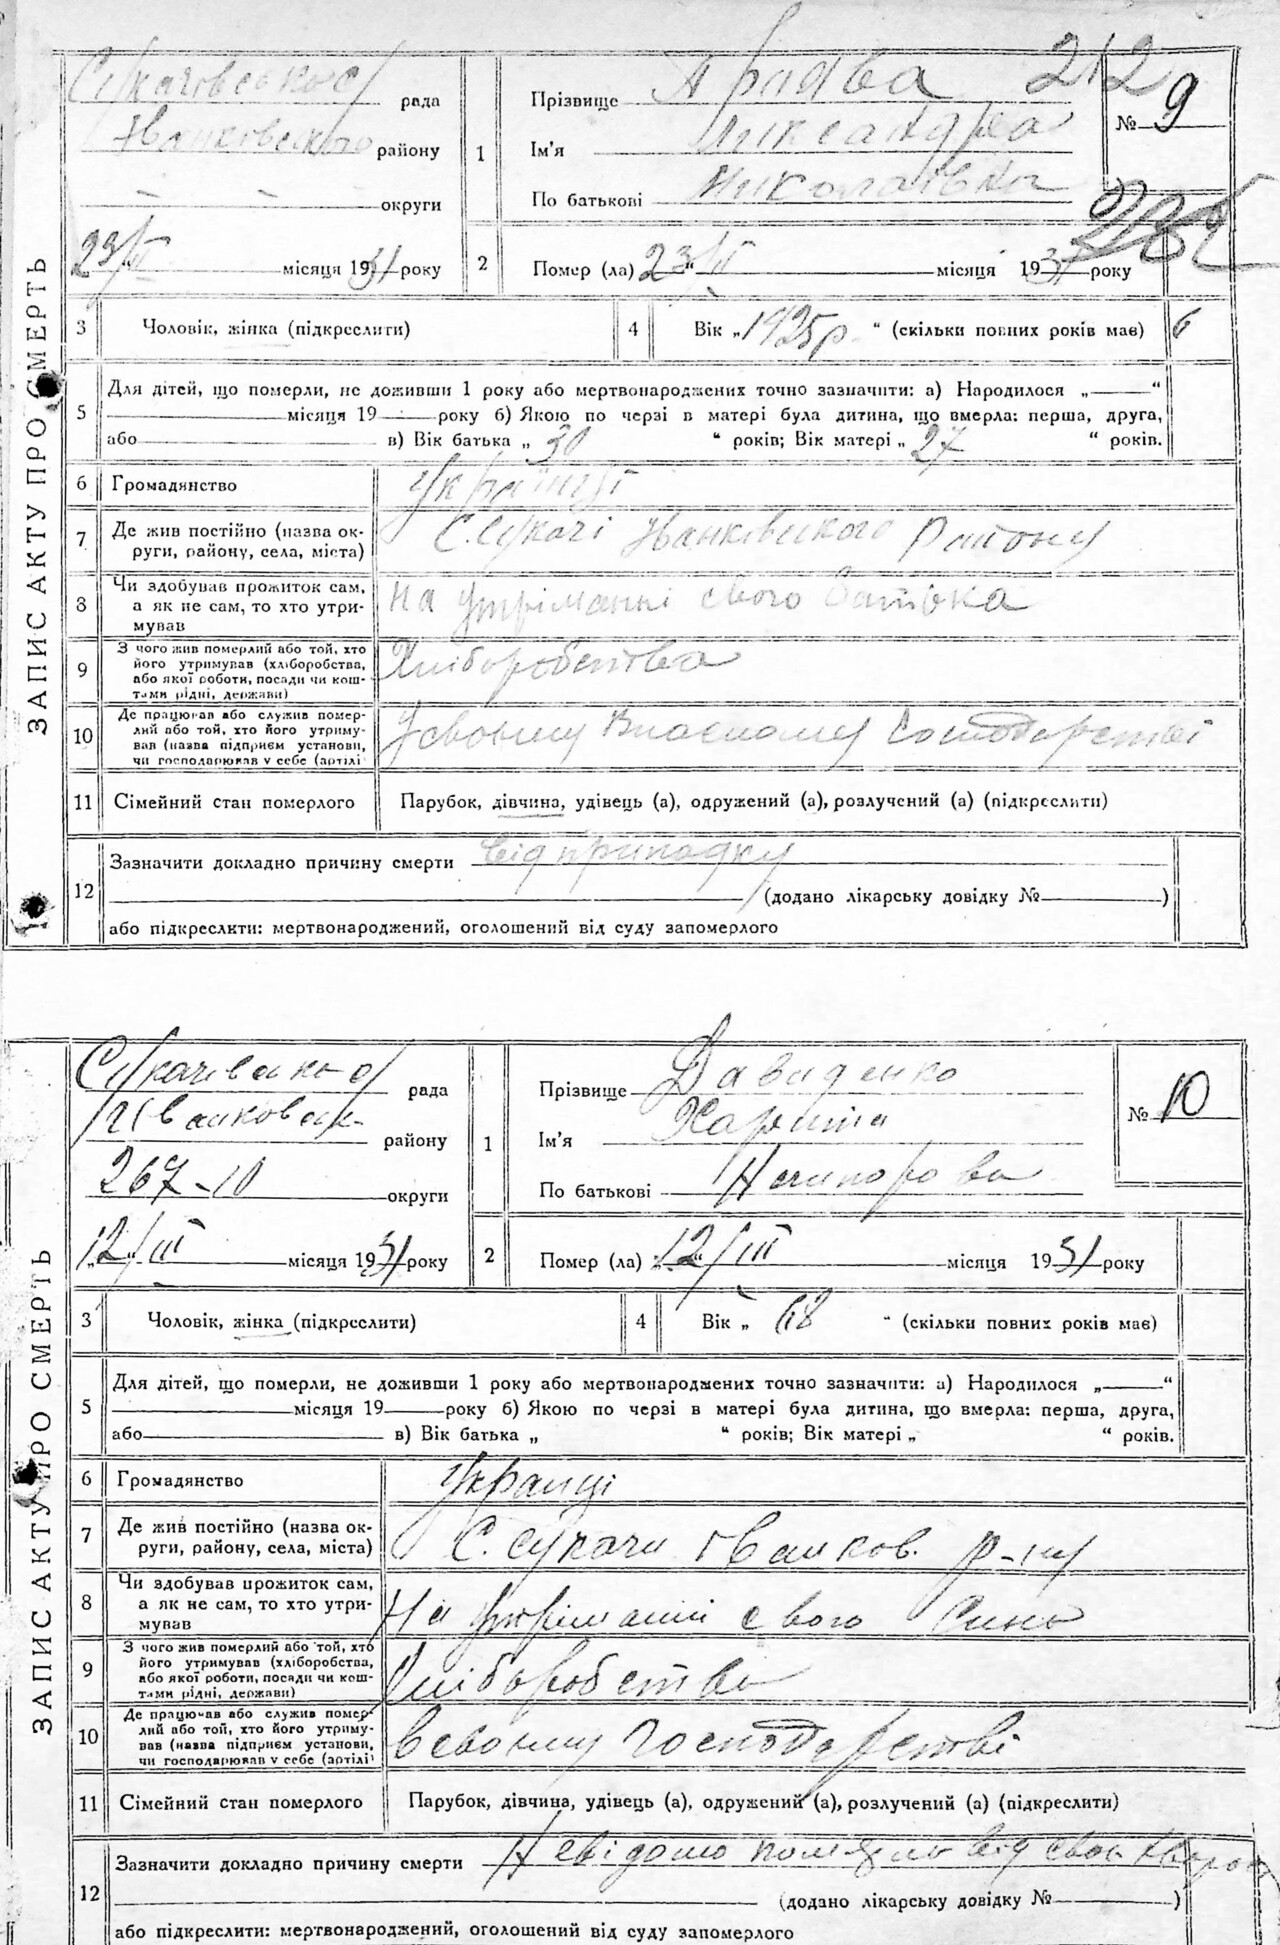 212
ЗАПИС АКТУ ПРО СМЕРТЬ
рада
Іванковского району
— — округи
23/II місяця 1931 року
1
Прізвище
Ім'я Лександра
По батькові Николаівна
№ 9
2
Помер (ла) 23/II місяця 1931 року
3 Чоловік, жінка (підкреслити)
4 Вік „1925р. “ (скільки повних років має) 6
5 Для дітей, що померли, не доживши 1 року або мертвонароджених точно зазначити: а) Народилося „——“
місяця 19 року б) Якою по черзі в матері була дитина, що вмерла: перша, друга,
або в) Вік батька „ 30 “ років; Вік матері „ 27 “ років.
6 Громадянство
7 Де жив постійно (назва ок-
руги, району, села, міста) С. Сукачі Іванківского Району
8 Чи здобував прожиток сам,
а як не сам, то хто утри-
мував На утріманні свого батька
9 З чого жив померлий або той, хто
його утримував (хліборобства,
або якої роботи, посади чи кош-
тами рідні, держави) Хліборобства
10 Де працював або служив помер-
лий або той, хто його утриму-
вав (назва підприєм установи,
чи господарював у себе (артілі) У своєму Власному Господарстві
11 Сімейний стан померлого Парубок, дівчина, удівець (а), одружений (а), розлучений (а) (підкреслити)
12 Зазначити докладно причину смерти від припадку
(додано лікарську довідку № )
або підкреслити: мертвонароджений, оголошений від суду запомерлого
ЗАПИС АКТУ ПРО СМЕРТЬ
рада
району
267-10 округи
12/III місяця 1931 року
1
Прізвище Давиденко
Ім'я Харитина
По батькові Нечипорова
№ 10
2
Помер (ла) „12“/III місяця 1931 року
3 Чоловік, жінка (підкреслити)
4 Вік „ 68 “ (скільки повних років має)
5 Для дітей, що померли, не доживши 1 року або мертвонароджених точно зазначити: а) Народилося „——“
місяця 19 року б) Якою по черзі в матері була дитина, що вмерла: перша, друга,
або в) Вік батька „ “ років; Вік матері „ “ років.
6 Громадянство Украінці
7 Де жив постійно (назва ок-
руги, району, села, міста) С. Сукачи Іванков. р-ну
8 Чи здобував прожиток сам,
а як не сам, то хто утри-
мував На утріманні свого Сина
9 З чого жив померлий або той, хто
його утримував (хліборобства,
або якої роботи, посади чи кош-
тами рідні, держави) Хліборобства
10 Де працював або служив помер-
лий або той, хто його утриму-
вав (назва підприєм установи,
чи господарював у себе (артілі) В своєму Господарстві
11 Сімейний стан померлого Парубок, дівчина, удівець (а), одружений (а), розлучений (а) (підкреслити)
12 Зазначити докладно причину смерти Невідомо від
(додано лікарську довідку № )
або підкреслити: мертвонароджений, оголошений від суду запомерлого